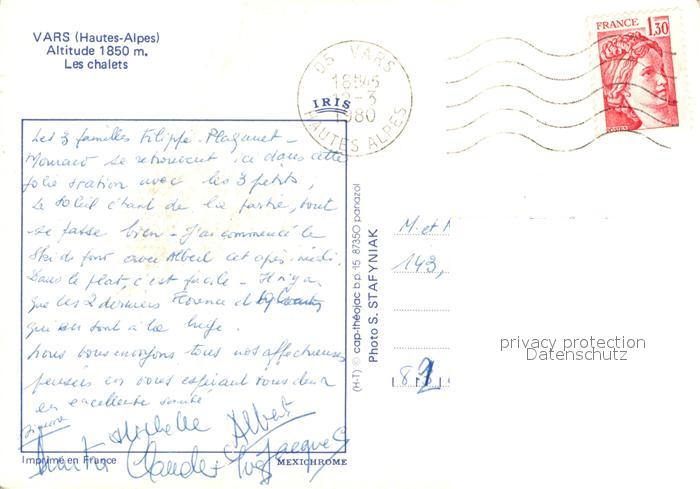 VARS (Hautes-Alpes)
Altitude 1850 m.
Les chalets
05 VARS
18H45
12-3
1980
HAUTES ALPES
FRANCE
1,30
IRIS
Les 3 familles Filippi - Plaganet -
Monaco se retrouvent, ce dans cette
jolie station avec les 3 petits,
Le soleil étant de la partie, tout
se passe bien - J'ai commencé le
Ski de fond avec Albert cet après-midi.
Dans le plat, c'est facile - Il n'y a
que les 2 derniers Florence et
qui en sont à la luge.
Nous vous envoyons tous nos affectueuses
pensées en vous espérant tous deux
en excellente santé
Michelle Albert
Claude Jacques
Imprimé en France
MEXICHROME
(H-T) © cap-théojac b.p. 15 87350 panazol
Photo S. STAFYNIAK
M. et M
143,
82
privacy protection
Datenschutz